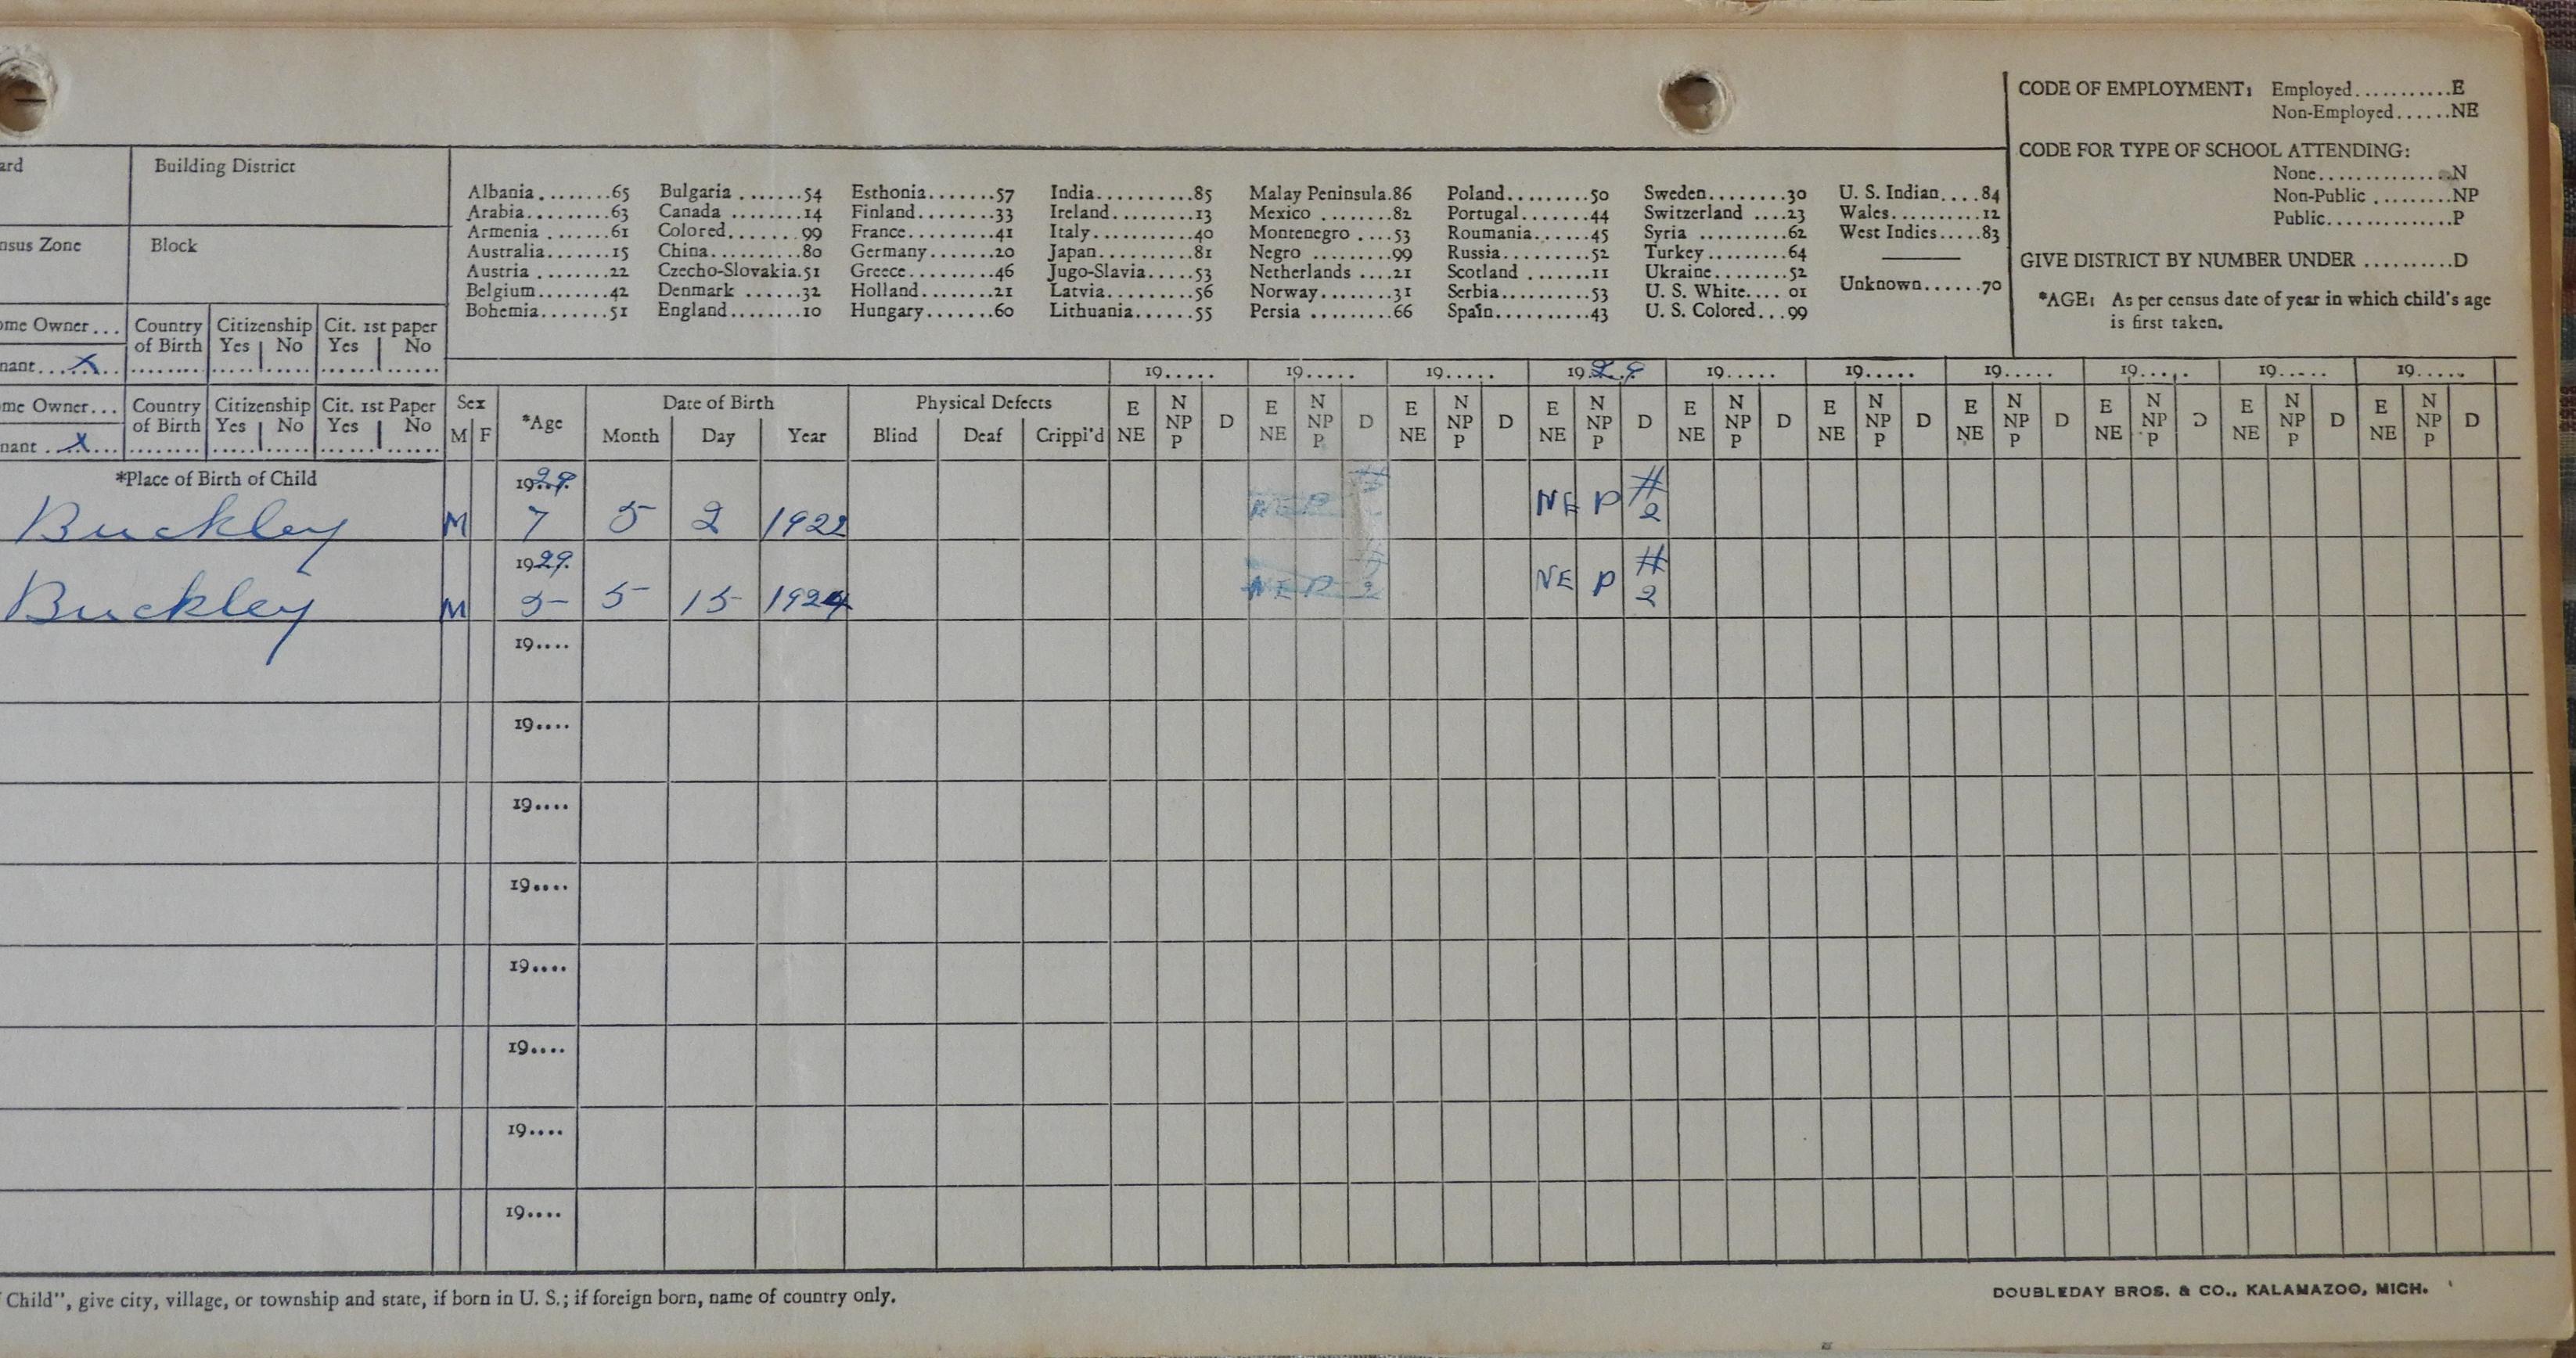 CODE OF EMPLOYMENT: Employed...........E
Non-Employed......NE
CODE FOR TYPE OF SCHOOL ATTENDING:
None...............N
Non-Public..........NP
Public.............P
GIVE DISTRICT BY NUMBER UNDER..........D
*AGE: As per census date of year in which child's age
is first taken.
ard Building District
nsus Zone Block
Albania........65 Bulgaria.......54 Esthonia.......57 India..........85 Malay Peninsula.86 Poland.........50 Sweden........30 U. S. Indian....84
Arabia.........63 Canada........14 Finland........33 Ireland.........13 Mexico........82 Portugal.......44 Switzerland....23 Wales..........12
Armenia.......61 Colored.......99 France.........41 Italy..........40 Montenegro....53 Roumania......45 Syria.........62 West Indies.....83
Australia......15 China..........80 Germany.......20 Japan..........81 Negro.........99 Russia.........52 Turkey.........64
Austria........22 Czecho-Slovakia.51 Greece.........46 Jugo-Slavia.....53 Netherlands....21 Scotland.......11 Ukraine........52 Unknown......70
Belgium........42 Denmark......32 Holland........21 Latvia.........56 Norway........31 Serbia..........53 U. S. White....01
Bohemia.......51 England.......10 Hungary.......60 Lithuania......55 Persia.........66 Spain..........43 U. S. Colored...99
ome Owner... Country of Birth Citizenship Yes No Cit. 1st paper Yes No
nant....X...
19..... 19..... 19..... 1929 19..... 19..... 19..... 19..... 19..... 19.....
me Owner... Country of Birth Citizenship Yes No Cit. 1st Paper Yes No
nant...X...
Sex *Age Date of Birth Physical Defects
M F Month Day Year Blind Deaf Crippl'd
E N D E N D E N D E N D E N D E N D E N D E N D E N D E N D
NE NP NE NP NE NP NE NP NE NP NE NP NE NP NE NP NE NP NE NP
P P P P P P P P P P
*Place of Birth of Child 1929
Buckley M 7 5 2 1922 NE P # 2
1929
Buckley M 5 5 15 1924 NE P 2 NE P # 2
19....
19....
19....
19....
19....
19....
19....
19....
Child", give city, village, or township and state, if born in U. S.; if foreign born, name of country only.
DOUBLEDAY BROS. & CO., KALAMAZOO, MICH.